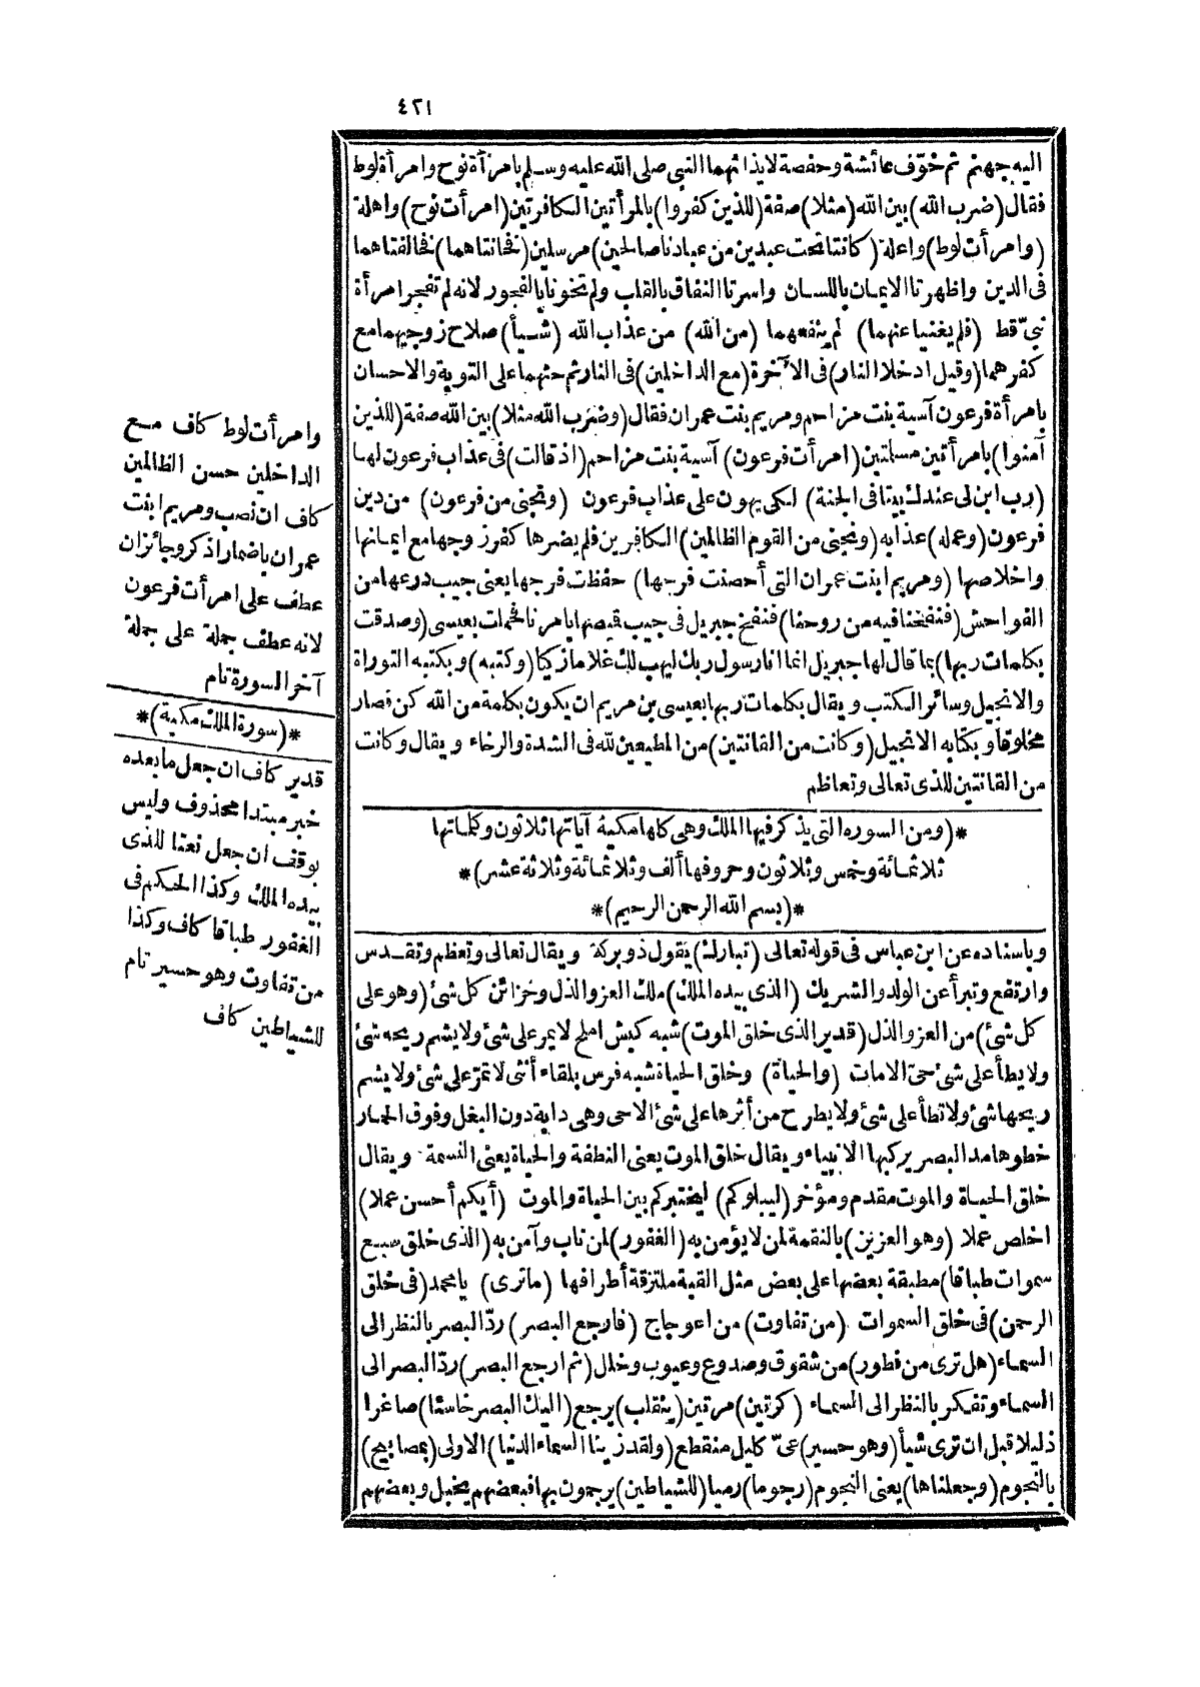 ٤٢١
اليه جهنم ثم خوّف عائشة وحفصة لايذائهما النبى صلى الله عليه وسلم بامرأة نوح وامرأة لوط
فقال (ضرب الله) بين الله (مثلا) صفة (للذين كفروا) بالمرأتين الكافرتين (امرأت نوح) واهلة
(وامرأت لوط) واعلة (كانتا تحت عبدين من عبادنا صالحين) مرسلين (فخانتاهما) فخالفتاهما
فى الدين واظهرتا الايمان باللسان واسرتا النفاق بالقلب ولم تخونا بالفجور لانه لم تفجر امرأة
نبىّ قط (فلم يغنيا عنهما) لم ينفعهما (من الله) من عذاب الله (شيأ) صلاح زوجيهما مع
كفرهما (وقيل ادخلا النار) فى الآخرة (مع الداخلين) فى النار ثم حثهما على التوبة والاحسان
بامرأة فرعون آسية بنت مزاحم ومريم بنت عمران فقال (وضرب الله مثلا) بين الله صفة (للذين
آمنوا) بامرأتين مسلمتين (امرأت فرعون) آسية بنت مزاحم (اذ قالت) فى عذاب فرعون لها
(رب ابن لى عندك بيتا فى الجنة) لكى يهون على عذاب فرعون (ونجنى من فرعون) من دين
فرعون (وعمله) عذابه (ونجنى من القوم الظالمين) الكافرين فلم يضرها كفر زوجها مع ايمانها
واخلاصها (ومريم ابنت عمران التى أحصنت فرجها) حفظت فرجها يعنى جيب درعها من
الفواحش (فنفخنا فيه من روحنا) فنفخ جبريل فى جيب قميصها بامرنا فحملت بعيسى (وصدقت
بكلمات ربها) بما قال لها جبريل انما انا رسول ربك ليهب لك غلاما زكيا (وكتبه) وبكتبه التوراة
والانجيل وسائر الكتب ويقال بكلمات ربها بعيسى بن مريم ان يكون بكلمة من الله كن فصار
مخلوقا وبكتابه الانجيل (وكانت من القانتين) من المطيعين لله فى الشدة والرخاء ويقال وكانت
من القانتين للذى تعالى وتعاظم
*(ومن السورة التى يذكر فيها الملك وهى كلها مكية آياتها ثلاثون وكلماتها
ثلاثمائة وخمس وثلاثون وحروفها ألف وثلاثمائة وثلاثة عشر)*
*(بسم الله الرحمن الرحيم)*
وباسناده عن ابن عباس فى قوله تعالى (تبارك) يقول ذو بركة ويقال تعالى وتعظم وتقدس
وارتفع وتبرأ عن الولد والشريك (الذى بيده الملك) ملك العز والذل وخزائن كل شئ (وهو على
كل شئ) من العز والذل (قدير الذى خلق الموت) شبه كبش املح لا يمر على شئ ولا يشم ريحه شئ
ولا يطأ على شئ حىّ الامات (والحياة) وخلق الحياة شبه فرس بلقاء أنثى لا تمرّ على شئ ولا يشم
ريحها شئ ولا تطأ على شئ ولا يطرح من أثرها على شئ الا حى وهى دابة دون البغل وفوق الحمار
خطوها مد البصر يركبها الانبياء ويقال خلق الموت يعنى النطفة والحياة يعنى النسمة ويقال
خلق الحياة والموت مقدم ومؤخر (ليبلوكم) ليختبركم بين الحياة والموت (أيكم أحسن عملا)
اخلص عملا (وهو العزيز) بالنقمة لمن لا يؤمن به (الغفور) لمن تاب وآمن به (الذى خلق سبع
سموات طباقا) مطبقة بعضها على بعض مثل القبة ملتزقة أطرافها (ماترى) يا محمد (فى خلق
الرحمن) فى خلق السموات (من تفاوت) من اعوجاج (فارجع البصر) ردّ البصر بالنظر الى
السماء (هل ترى من فطور) من شقوق وصدوع وعيوب وخلل (ثم ارجع البصر) ردّ البصر الى
السماء وتفكر بالنظر الى السماء (كرتين) مرتين (ينقلب) يرجع (اليك البصر خاسئا) صاغرا
ذليلا قبل ان ترى شيأ (وهو حسير) عىّ كليل منقطع (ولقد زينا السماء الدنيا) الاولى (بمصابيح)
بالنجوم (وجعلناها) يعنى النجوم (رجوما) رميا (للشياطين) يرجمون بها فبعضهم يخبل وبعضهم
وامرأت لوط كاف مع
الداخلين حسن الظالمين
كاف ان نصب ومريم ابنت
عمران باضمار اذكر وجائز ان
عطف على امرأت فرعون
لانه عطف جملة على جملة
آخر السورة تام
*(سورة الملك مكية)*
قدير كاف ان جعل ما بعده
خبر مبتدا محذوف وليس
بوقف ان جعل نعتا للذى
بيده الملك وكذا الحكم فى
الغفور طباقا كاف وكذا
من تفاوت وهو حسير تام
للشياطين كاف